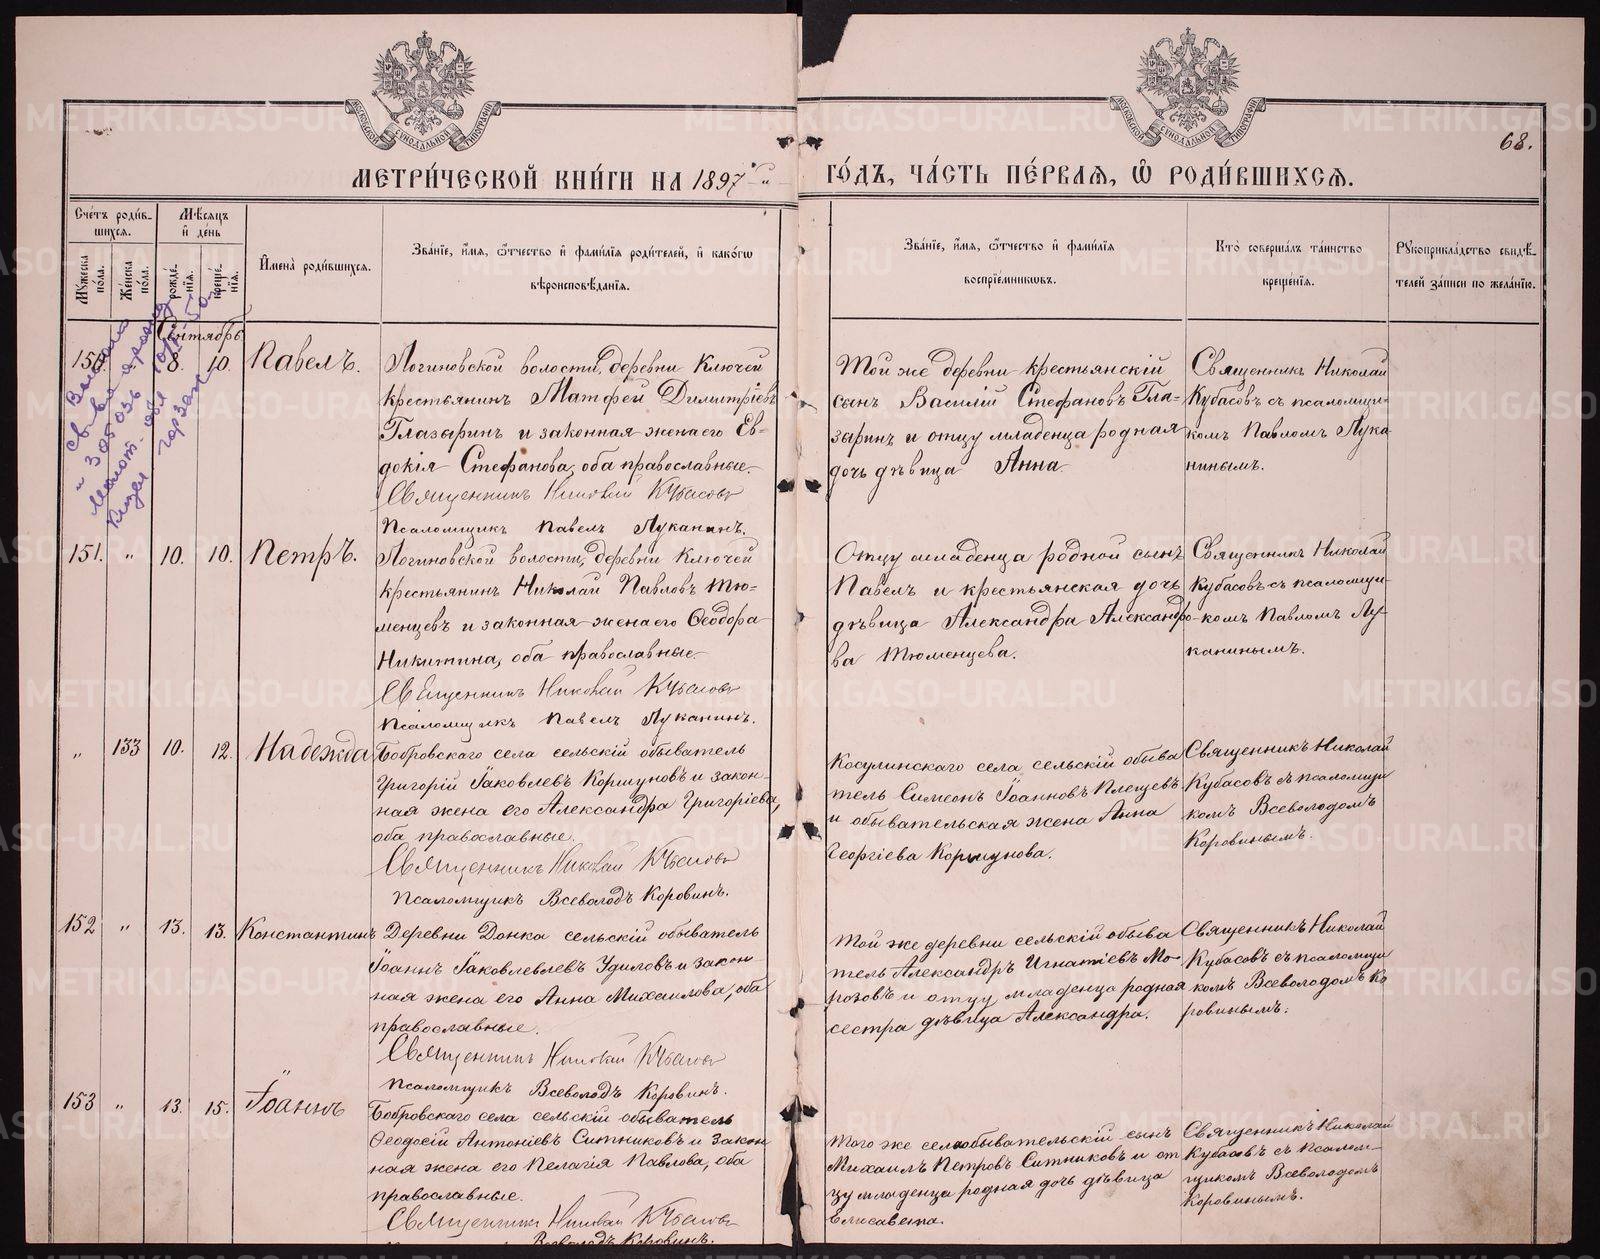 МЕТРИ́ЧЕСКОЙ КНИ́ГИ НА 1897
ГО́ДЪ, ЧА́СТЬ ПЕ́РВАЯ, Ѡ РОДИ́ВШИХСЯ.
68.
Сче́тъ роди́в-
шихся.
Мѣ́сяцъ
и҆ де́нь
Мꙋ́жеска
по́ла.
Же́нска
по́ла.
рожде́-
нїя.
креще́-
нїя.
И҆мена̀ роди́вшихся.
Зва́нїе, и҆́мя, ѻ҆́тчество и҆ фами́лїя роди́телей, и҆ како́гѡ
вѣроисповѣ́данїя.
Зва́нїе, и҆́мя, ѻ҆́тчество и҆ фами́лїя
воспрїе́мникѡвъ.
Кто̀ соверша́лъ та́инство
креще́нїя.
Рꙋкоприкла́дство свидѣ́-
телей за́писи по жела́нїю.
Сентябрь
150. 8. 10. Павелъ.
Логиновской волости, деревни Ключей
крестьянинъ Матфей Димитріевъ
Глазыринъ и законная жена его Ев-
докія Стефанова, оба православные.
Священникъ Николай Кубасовъ
Псаломщикъ Павелъ Луканинъ.
Той же деревни крестьянскій
сынъ Василій Стефановъ Гла-
зыринъ и отцу младенца родная
дочь дѣвица Анна
Священникъ Николай
Кубасовъ съ псаломщи-
комъ Павломъ Лука
нинымъ.
151. " 10. 10. Петръ.
Логиновской волости, деревни Ключей
крестьянинъ Николай Павловъ Тю-
менцевъ и законная жена его Ѳеодора
Никитина, оба православные.
Священникъ Николай Кубасовъ
Псаломщикъ Павелъ Луканинъ.
Отцу младенца родной сынъ
Павелъ и крестьянская дочь
дѣвица Александра Александро-
ва Тюменцева.
Священникъ Николай
Кубасовъ съ псаломщи-
комъ Павломъ Лу-
канинымъ.
" 133 10. 12. Надежда
Бобровскаго села сельскій обыватель
Григорій Іаковлевъ Коршуновъ и закон-
ная жена его Александра Григоріева,
оба православные.
Священникъ Николай Кубасовъ
Псаломщикъ Всеволодъ Коровинъ.
Косулинскаго села сельскій обыва
тель Симеонъ Іоанновъ Плещевъ
и обывательская жена Анна
Георгіева Коршунова.
Священникъ Николай
Кубасовъ съ псаломщи
комъ Всеволодомъ
Коровинымъ.
152 " 13. 13. Константинъ
Деревни Донка сельскій обыватель
Іоаннъ Іаковлевлевъ Удиловъ и закон-
ная жена его Анна Михаилова, оба
православные.
Священникъ Николай Кубасовъ
Псаломщикъ Всеволодъ Коровинъ.
Той же деревни сельскій обыва
тель Александръ Игнатіевъ Мо-
розовъ и отцу младенца родная
сестра дѣвица Александра.
Священникъ Николай
Кубасовъ съ псаломщи
комъ Всеволодомъ Ко
ровинымъ.
153 " 13. 15. Іоаннъ
Бобровскаго села сельскій обыватель
Ѳеодосій Антоніевъ Ситниковъ и закон
ная жена его Пелагія Павлова, оба
православные.
Священникъ Николай Кубасовъ
Всеволодъ Коровинъ.
Того же села обывательскій сынъ
Михаилъ Петровъ Ситниковъ и от
цу младенца родная дочь дѣвица
Елисавета.
Священникъ Николай
Кубасовъ съ псалом-
щикомъ Всеволодомъ
Коровинымъ.
METRIKI.GASO-URAL.RU